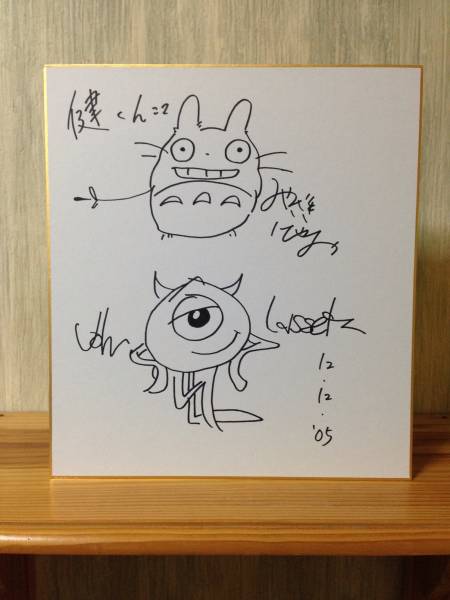 健くんに
みやざき
はやお
John Lasseter
12.12.'05